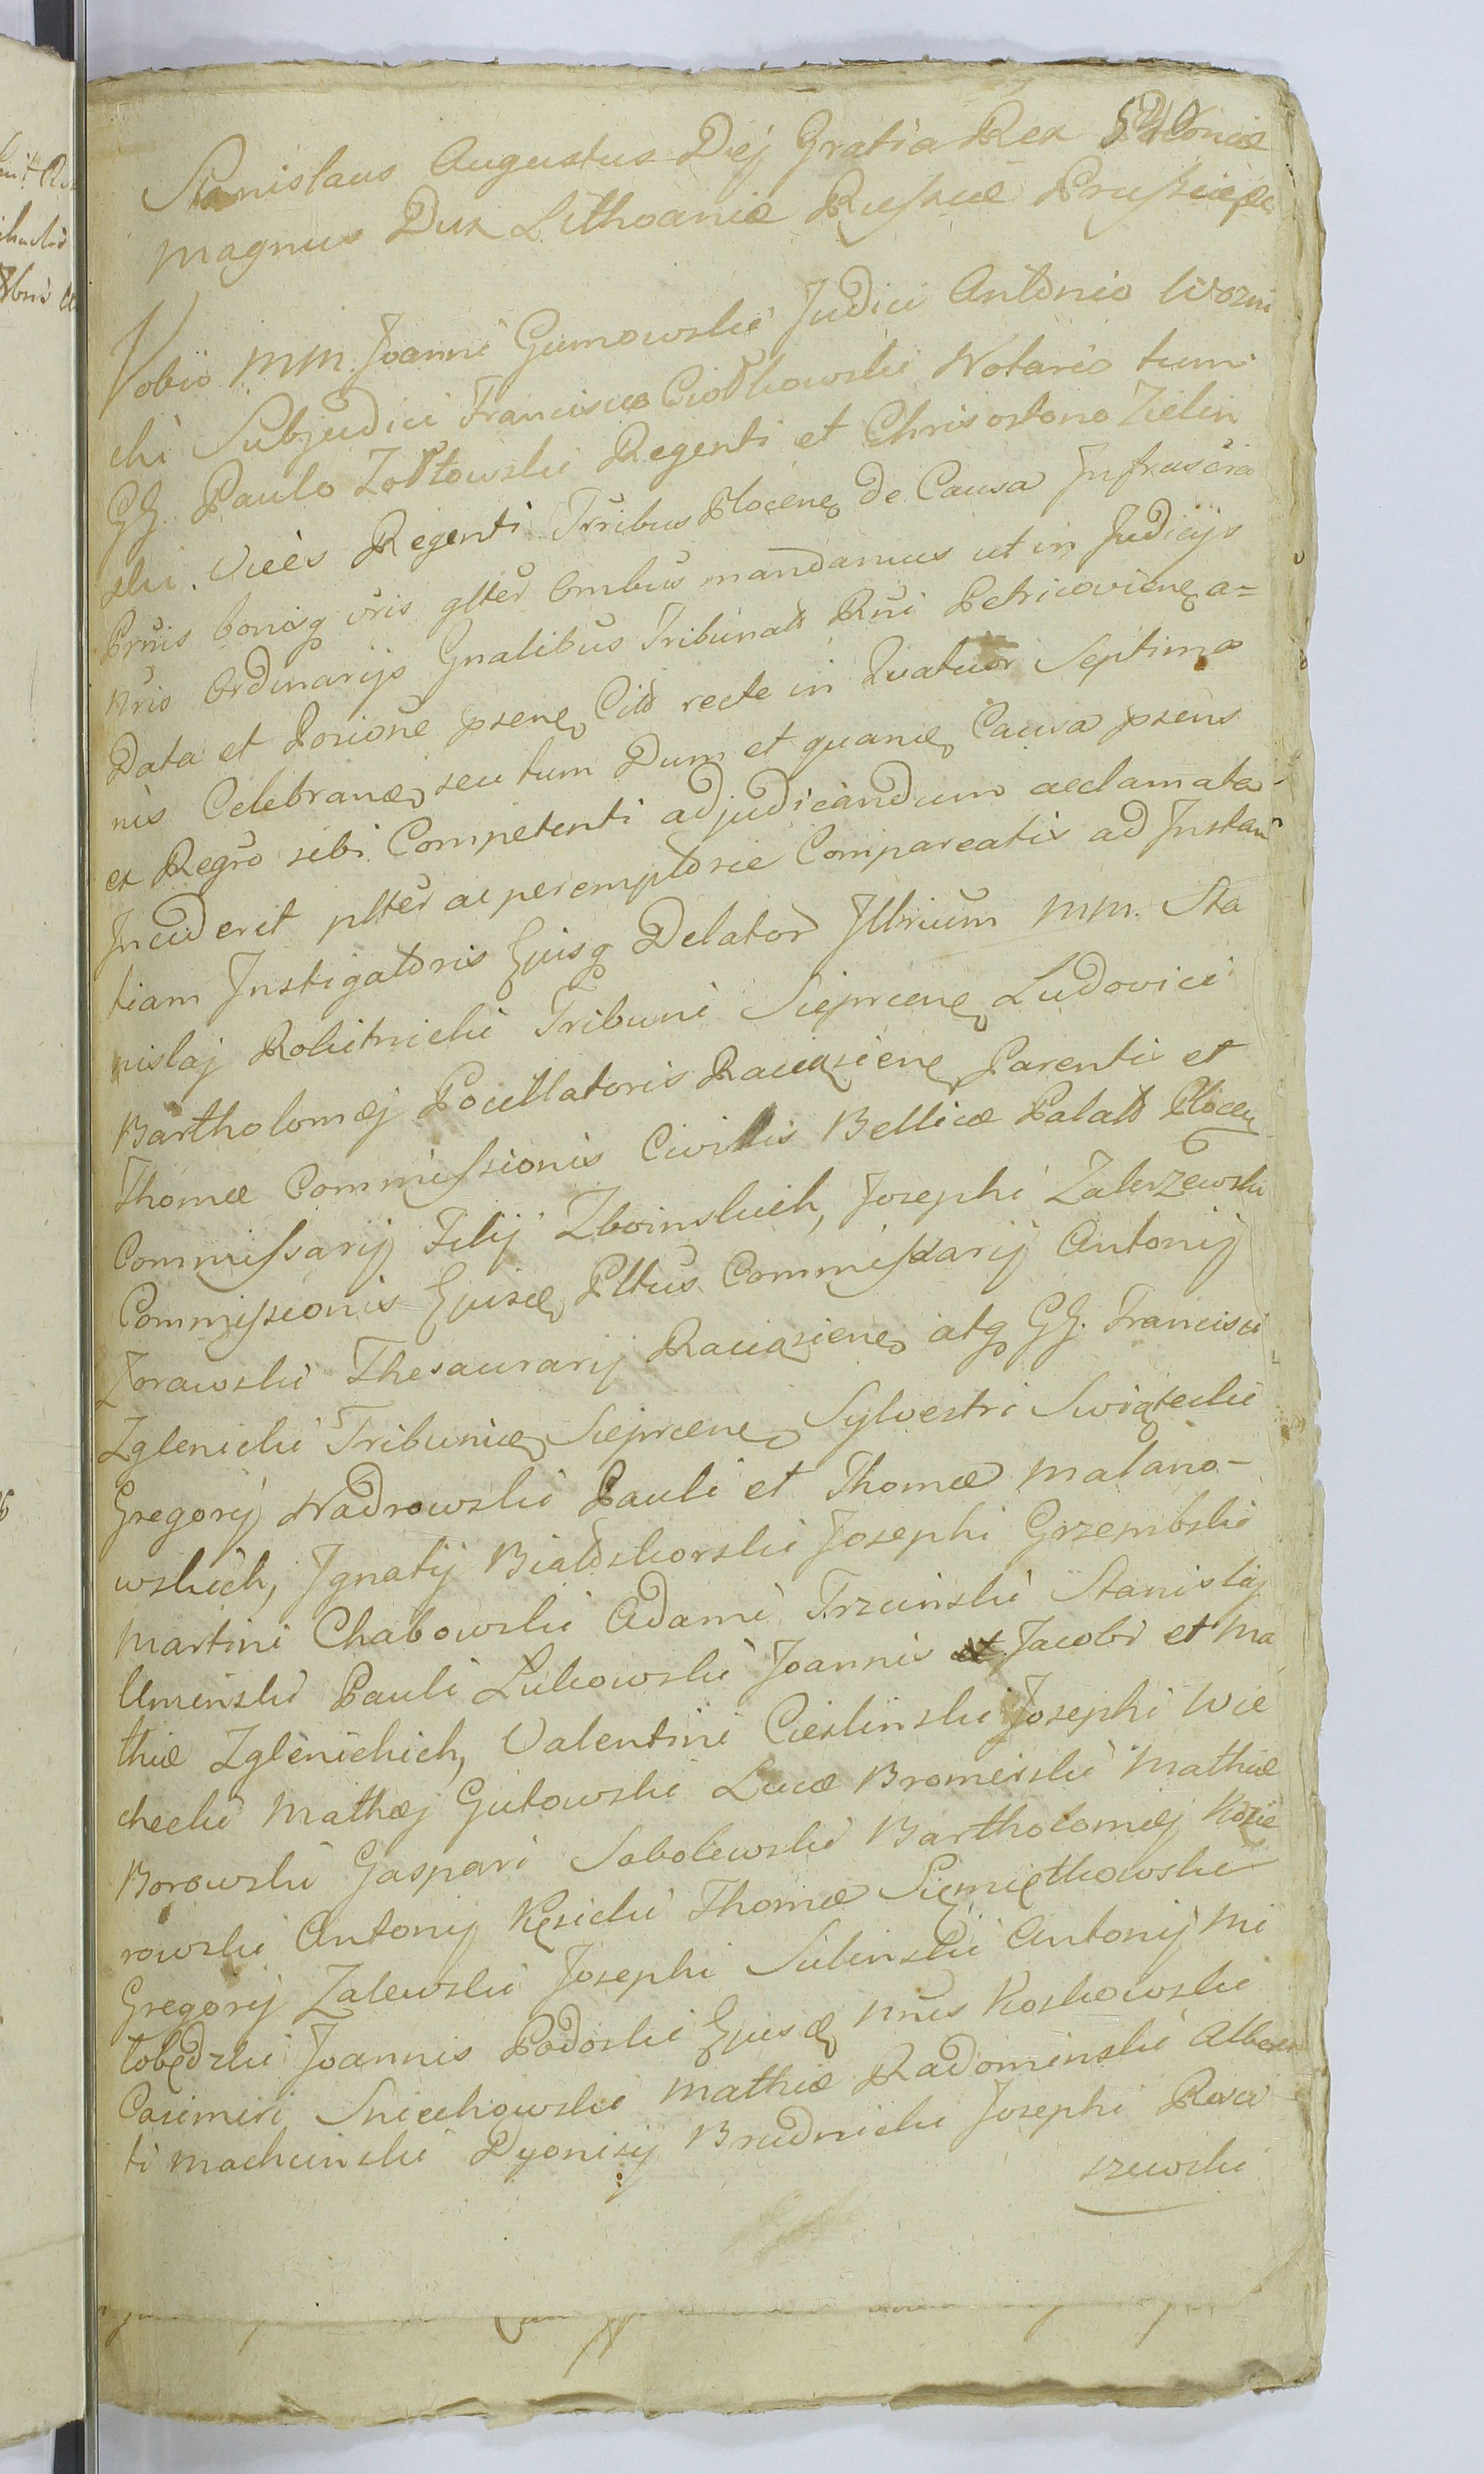 Stanislaus Augustus Dej Gratia Rex Poloniæ
520
Magnus Dux Lithoaniæ Russiæ Prussiæ
Vobis MM. Joanni Gumowski Judici Antonio Wozni
cki Subjudici Francisco Ciołkowski Notario tum
GG. Paulo Zołtowski Regenti et Chrisostomo Zielin
ski. Vices Regenti Trribus Plocen, de Causa Infrascra
Prnis bonisq vris glter ombus mandamus ut in Judicijs
Nris Ordinarijs Gnalibus Tribunals Rni Petricovien, a=
Data et Posione psenę Cito recte in Quatuor Septima
nis Celebranę, seu tum Dum et quanę, Causa psens
ex Regro sibi Competenti adjudicandum acclamata
Inciderit plter ac peremptorie Compareatis ad Instan
tiam Instigatoris Ejusq Delator Illrium MM. Sta
nislaj Rokitnicki Tribuni Sieprcenę Ludovici
Bartholomæj Pocillatoris Raciązienę Parentis et
Thomæ Commissionis Civilis Bellicæ Palats Plocen
Commissarij Filij Zboinskich, Josephi Zakrzewski
Commissionis Ejusdę Pltus Commissarij Antonij
Zorawski Thesaurarij Raciązienę atq GG. Francisci
Zglenicki Tribunidę Sieprcenę Sylvestri Swiątecki
Gregorij Nadrowski Pauli et Thomæ Malano-
wskich, Ignatij Białoskorski Josephi Grzembski
Martini Chabowski Adami Trzcinski Stanislaj
Uminski Pauli Lukowski Joannis et Jacobi et Ma
thiæ Zglenickich, Valentini Cieslinski Josephi Wie
checki Mathæj Gutowski Lucæ Bromirski Mathiæ
Borowski Gaspari Sobolewski Bartholomæj Kozie
rowski Antonij Kęsicki Thomæ Siemiętkowski
Gregorij Zalewski Josephi Sulinski Antonij Mi
łobędzki Joannis Podoski Ejusdę Nnis Koskowski
Casimiri Sniechowski Mathiæ Radominski Alber
ti Machcinski Dyonisij Brudnicki Josephi Rosci
szewski